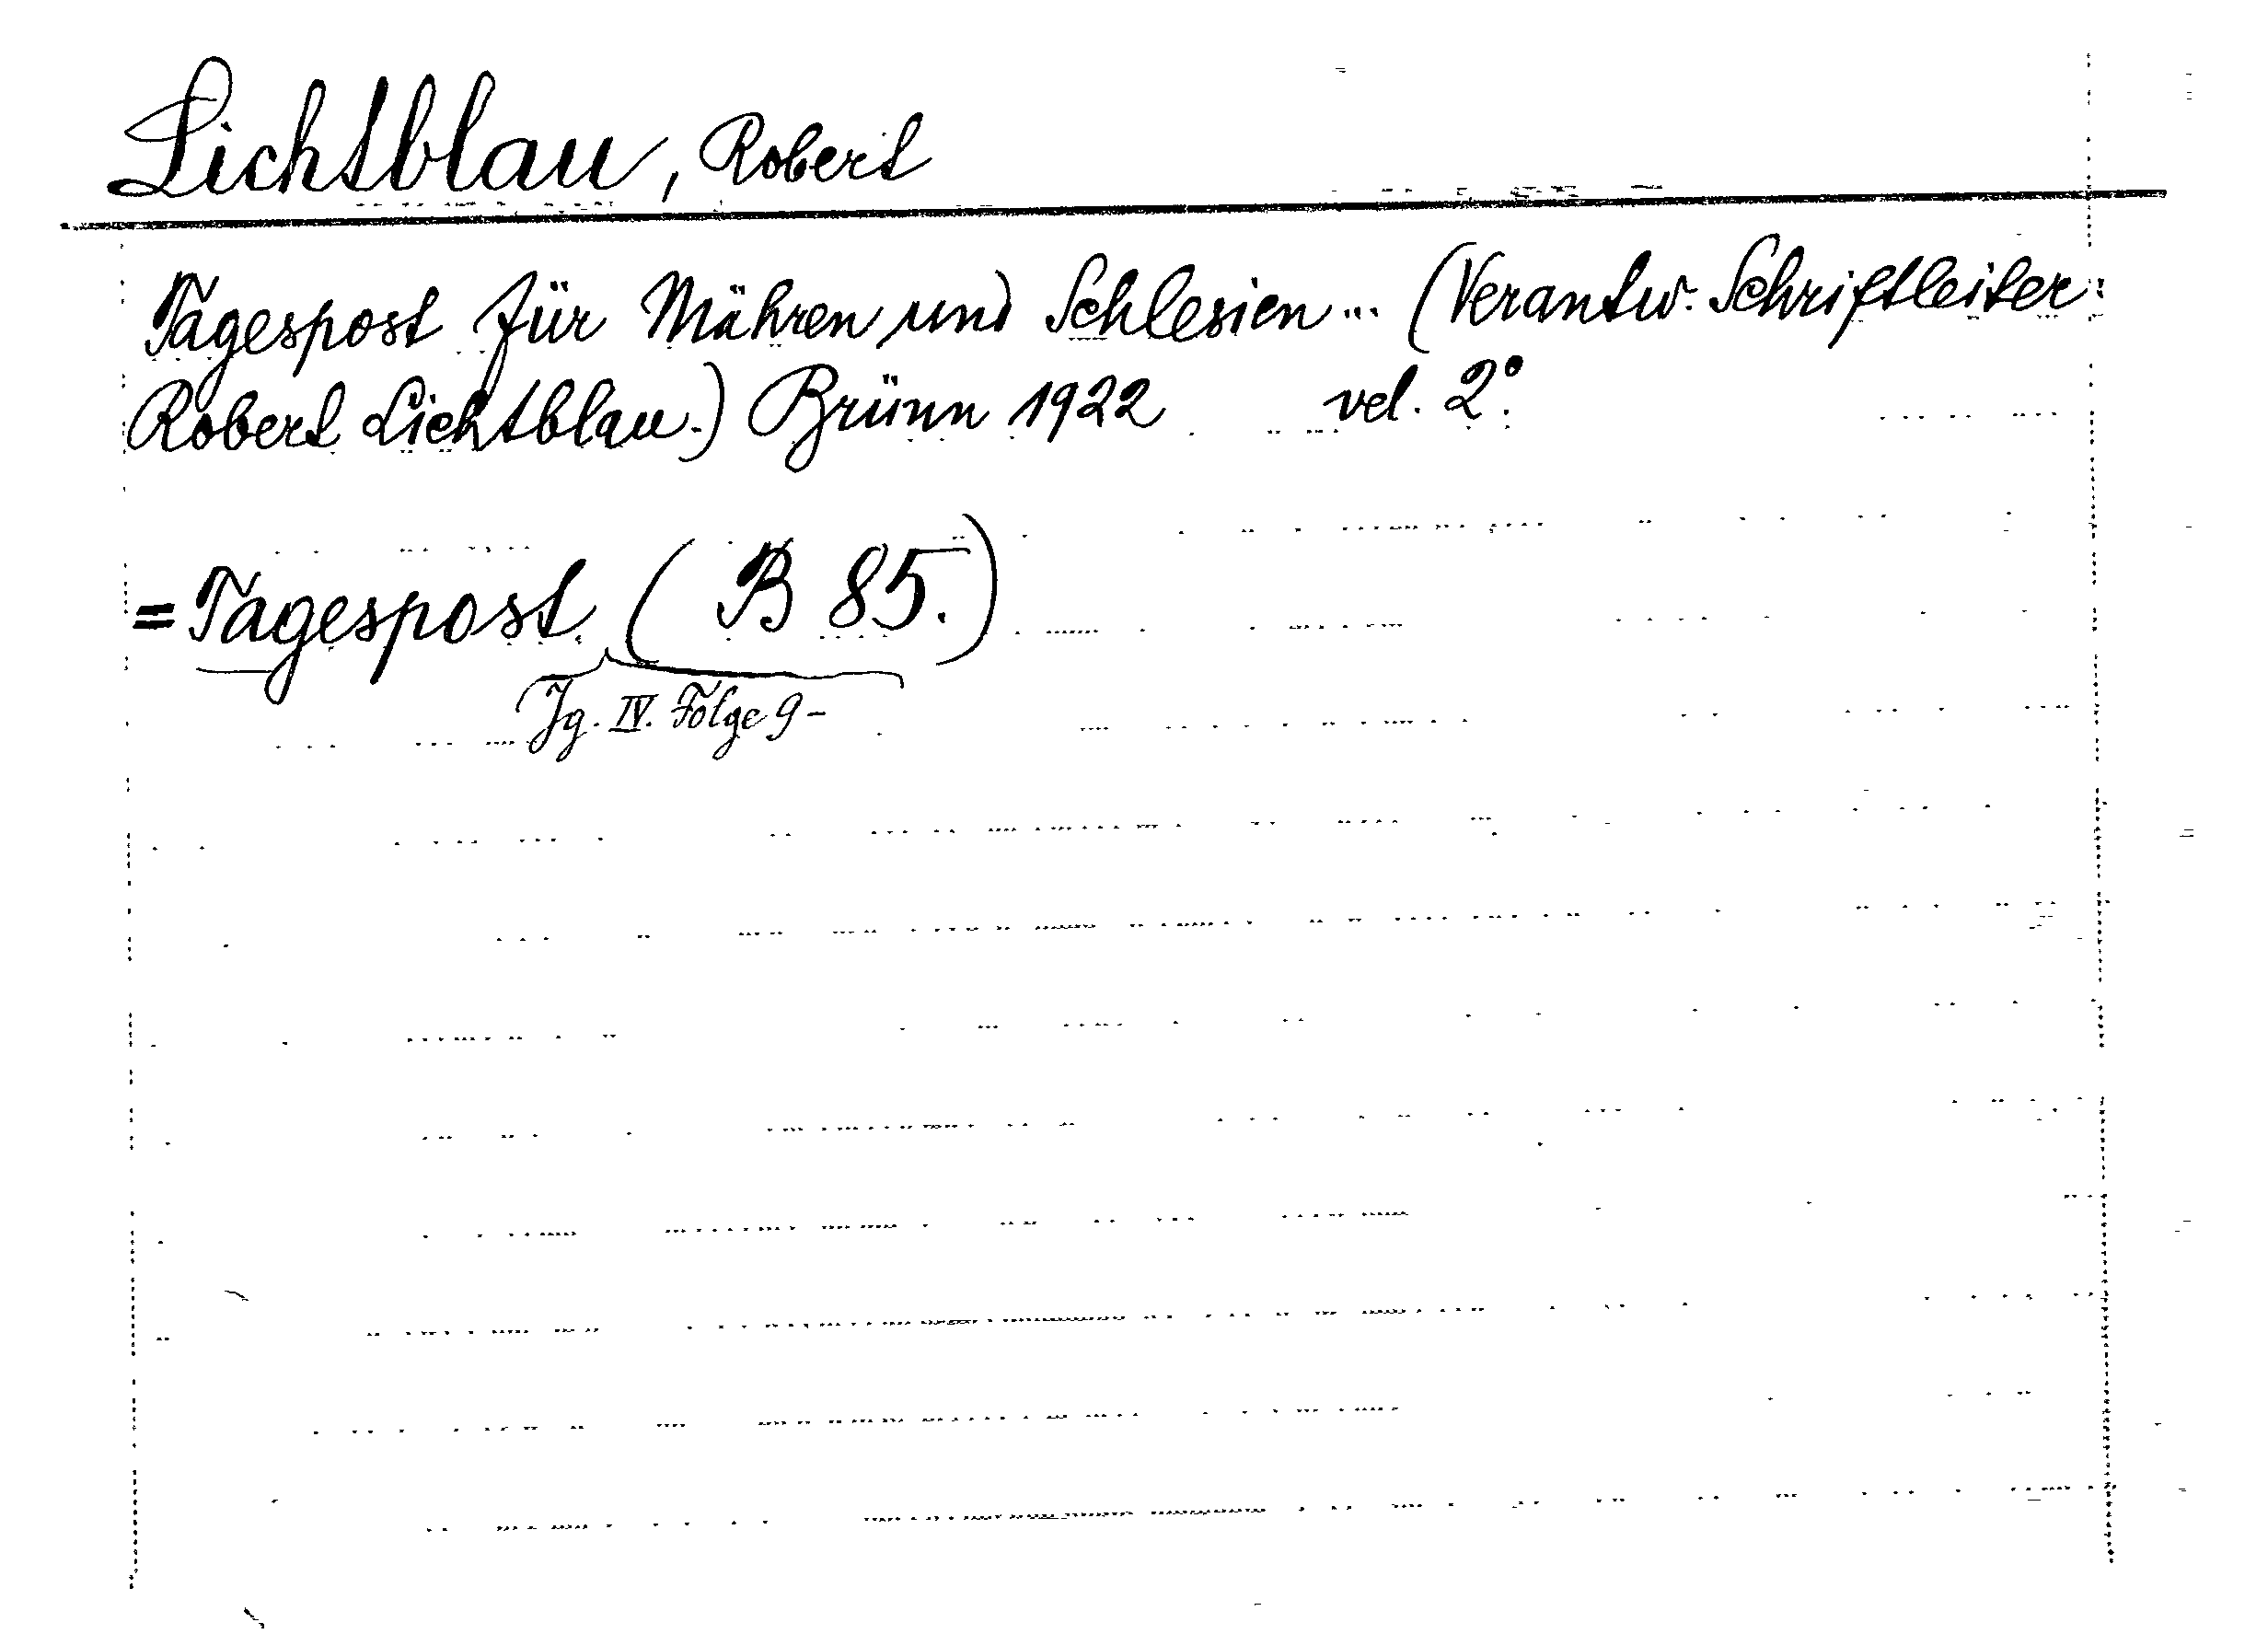 Lichtblau, Robert
Tagespost für Mähren und Schlesien ... (Verantw. Schriftleiter
Robert Lichtblau.) Brünn 1922 vel. 2°.
= Tagespost. (B 85.)
Jg. IV. Folge 9-